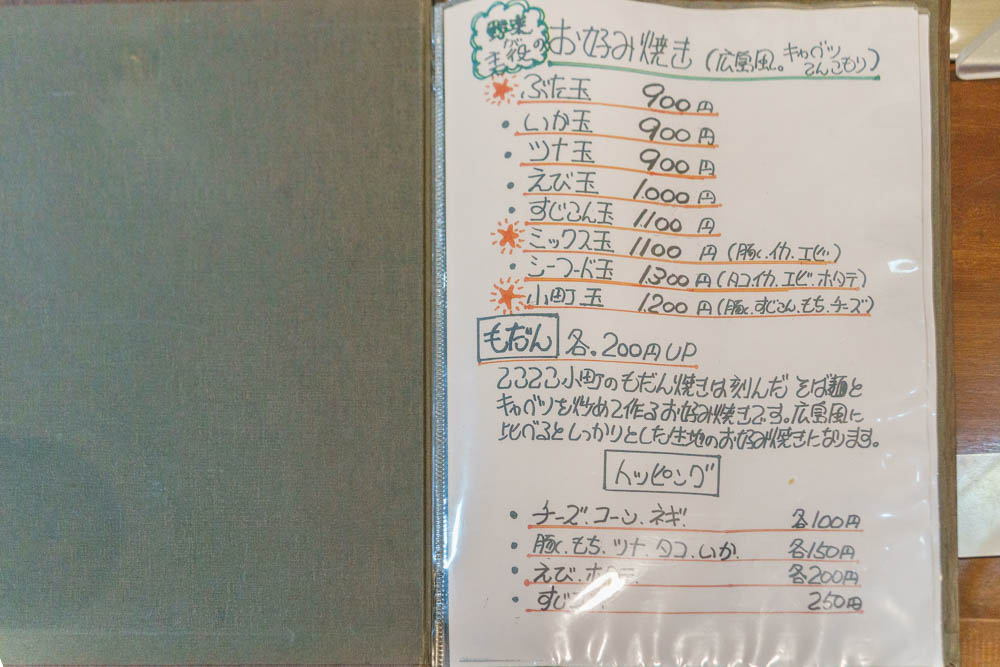 野菜が主役の
お好み焼き (広島風。キャベツてんこもり)
ぶた玉 900円
・いか玉 900円
・ツナ玉 900円
・えび玉 1.000円
・すじこん玉 1.100円
ミックス玉 1100円 (豚.イカ.エビ)
・シーフード玉 1.300円 (タコ.イカ.エビ.ホタテ)
小町玉 1.200円 (豚.すじこん.もち.チーズ)
もだん 各.200円UP
2323小町のもだん焼きは刻んだそば麺と
キャベツを炒めて作るお好み焼きです。広島風に
比べるとしっかりとした生地のお好み焼きになります。
トッピング
・チーズ.コーン.ネギ. 各100円
・豚.もち.ツナ.タコ.いか. 各150円
・えび.ホタテ 各200円
・すじ 250円